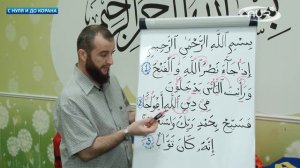 С НУЛЯ И ДО КОРАНА
بِسْمِ اللَّهِ الرَّحْمَٰنِ الرَّحِيمِ
إِذَا جَاءَ نَصْرُ اللَّهِ وَالْفَتْحُ
وَرَأَيْتَ النَّاسَ يَدْخُلُونَ
فِي دِينِ اللَّهِ أَفْوَاجًا
فَسَبِّحْ بِحَمْدِ رَبِّكَ
إِنَّهُ كَانَ تَوَّابًا